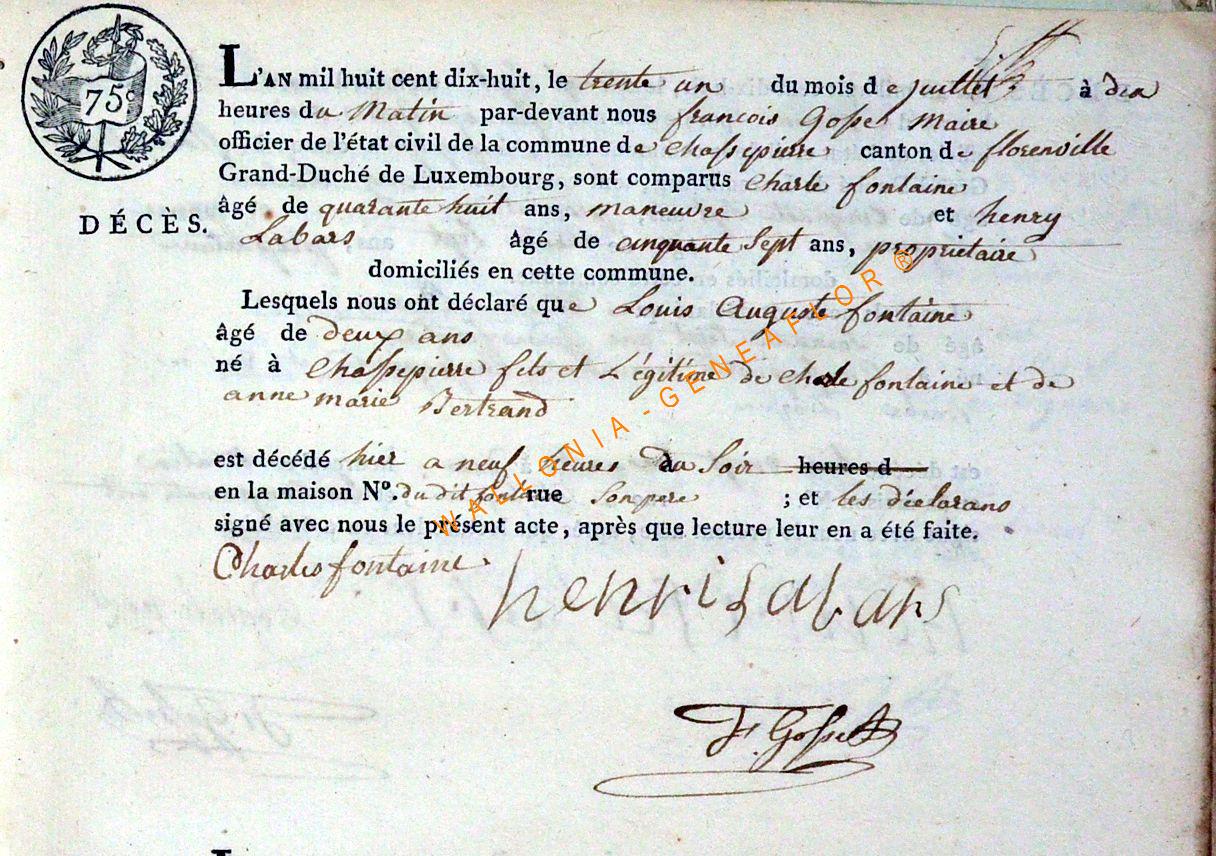 75c
L'AN mil huit cent dix-huit, le trente un du mois de juillet à dix
heures du Matin par-devant nous françois Gosse Maire
officier de l'état civil de la commune de Chassepierre canton de florenville
Grand-Duché de Luxembourg, sont comparus Charle fontaine
âgé de quarante huit ans, maneuvre et henry
DÉCÈS.
Labars âgé de cinquante Sept ans, proprietaire
domiciliés en cette commune.
Lesquels nous ont déclaré que Louis Auguste fontaine
âgé de deux ans
né à Chassepierre fils et Légitime de Charle fontaine et de
anne marie Bertrand
est décédé hier a neuf heures du Soir heures d
en la maison N°. du dit fontaine rue Son pere ; et les déclarans
signé avec nous le présent acte, après que lecture leur en a été faite.
Charles fontaine henri Labars
F. Gosse
WALLONIA-GENEAFLOR ®